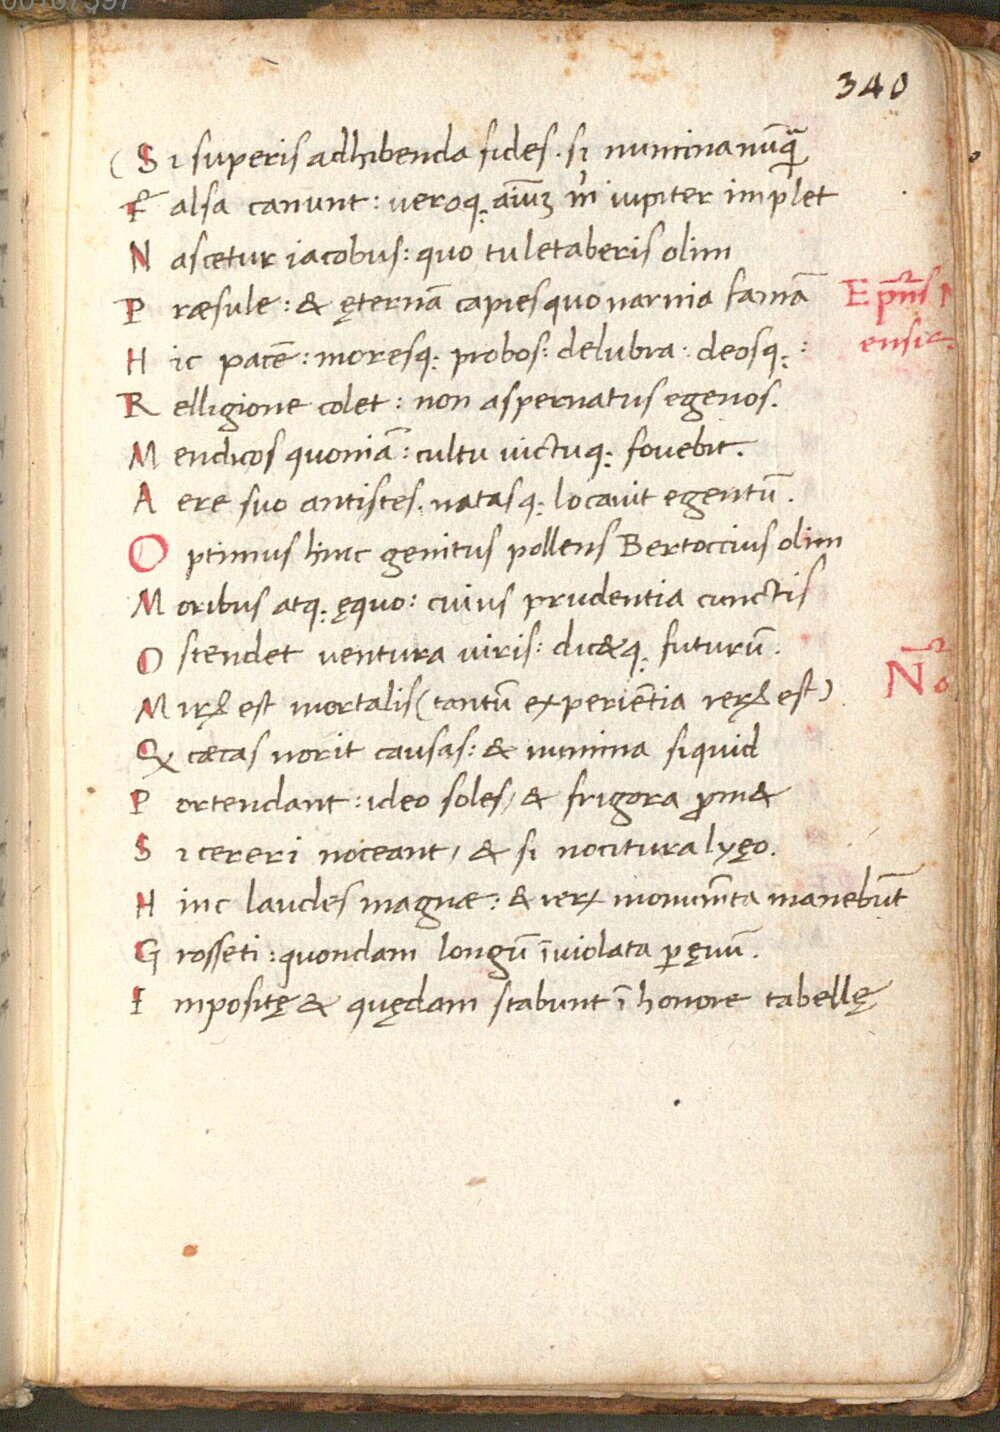 340
(Si superis adhibenda fides. si numina nūꝗ̄
Falsa canunt: ueroq; aīuȝ iupiter implet
Nascetur iacobus: quo tu letaberis olim
Præsule: & ęternā capies quo narnia famā
Hic pacē: moresq; probos: delubra: deosq;:
Relligione colet: non aspernatus egenos.
Mendicos quoniā: cultu uictuq; fouebit.
Aere suo antistes. natasq; locauit egentū.
Optimus hinc genitus pollens Bertoccius olim
Moribus atq; ęquo: cuius prudentia cunctis
Ostendet uentura uiris: dic&q; futurū.
Mirꝝ est mortalis (tantū experiētia rerꝝ est)
Qꝫ cæcas norit causas: & numina siquid
Portendant: ideo soles, & frigora ꝓm&
Si cereri noceant, & si nocitura lyęo.
Hinc laudes magnæ: & rerꝝ monumēta manebūt
Grosseti: quondam longū īuiolata ꝑ ęuū.
Impositę & quędam stabunt ī honore tabellę
Ep̄us
ensis.
No